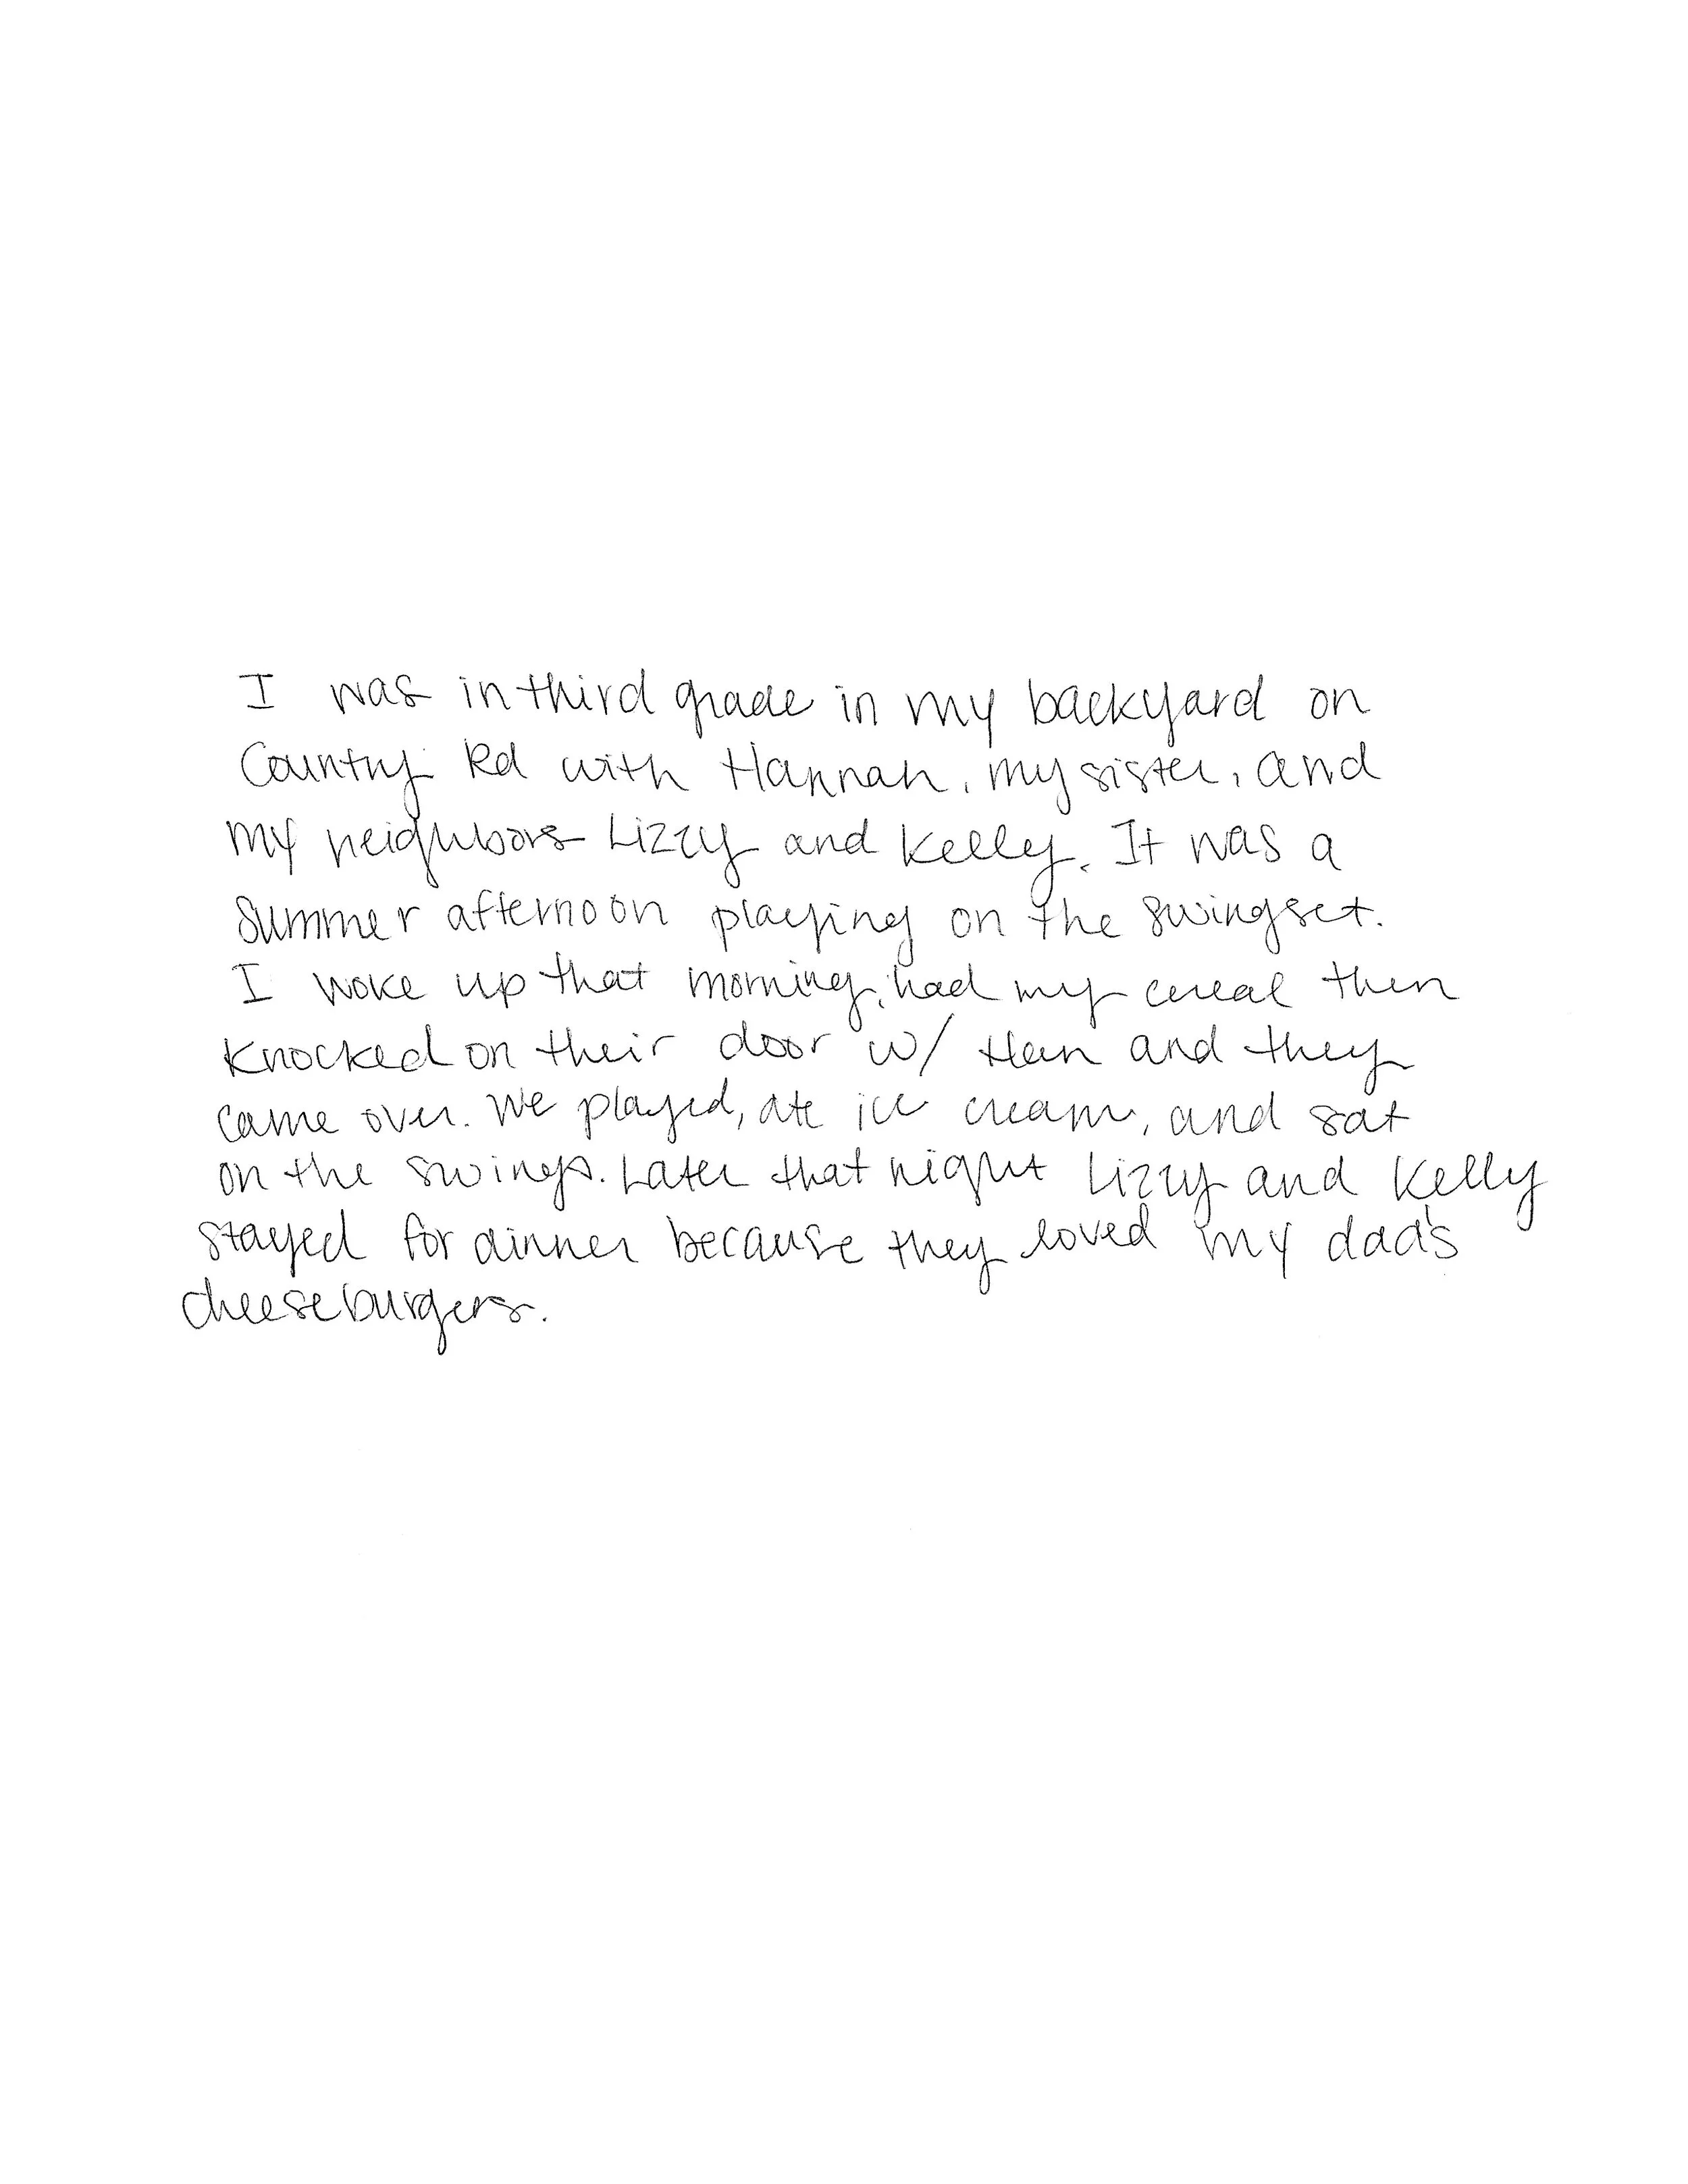 I was in third grade in my backyard on
Country Rd with Hannah, my sister, and
my neighbors Lizzy and Kelly. It was a
summer afternoon playing on the swingset.
I woke up that morning, had my cereal then
knocked on their door w/ Han and they
came over. We played, ate ice cream, and sat
on the swings. Later that night Lizzy and Kelly
stayed for dinner because they loved my dad's
cheeseburgers.